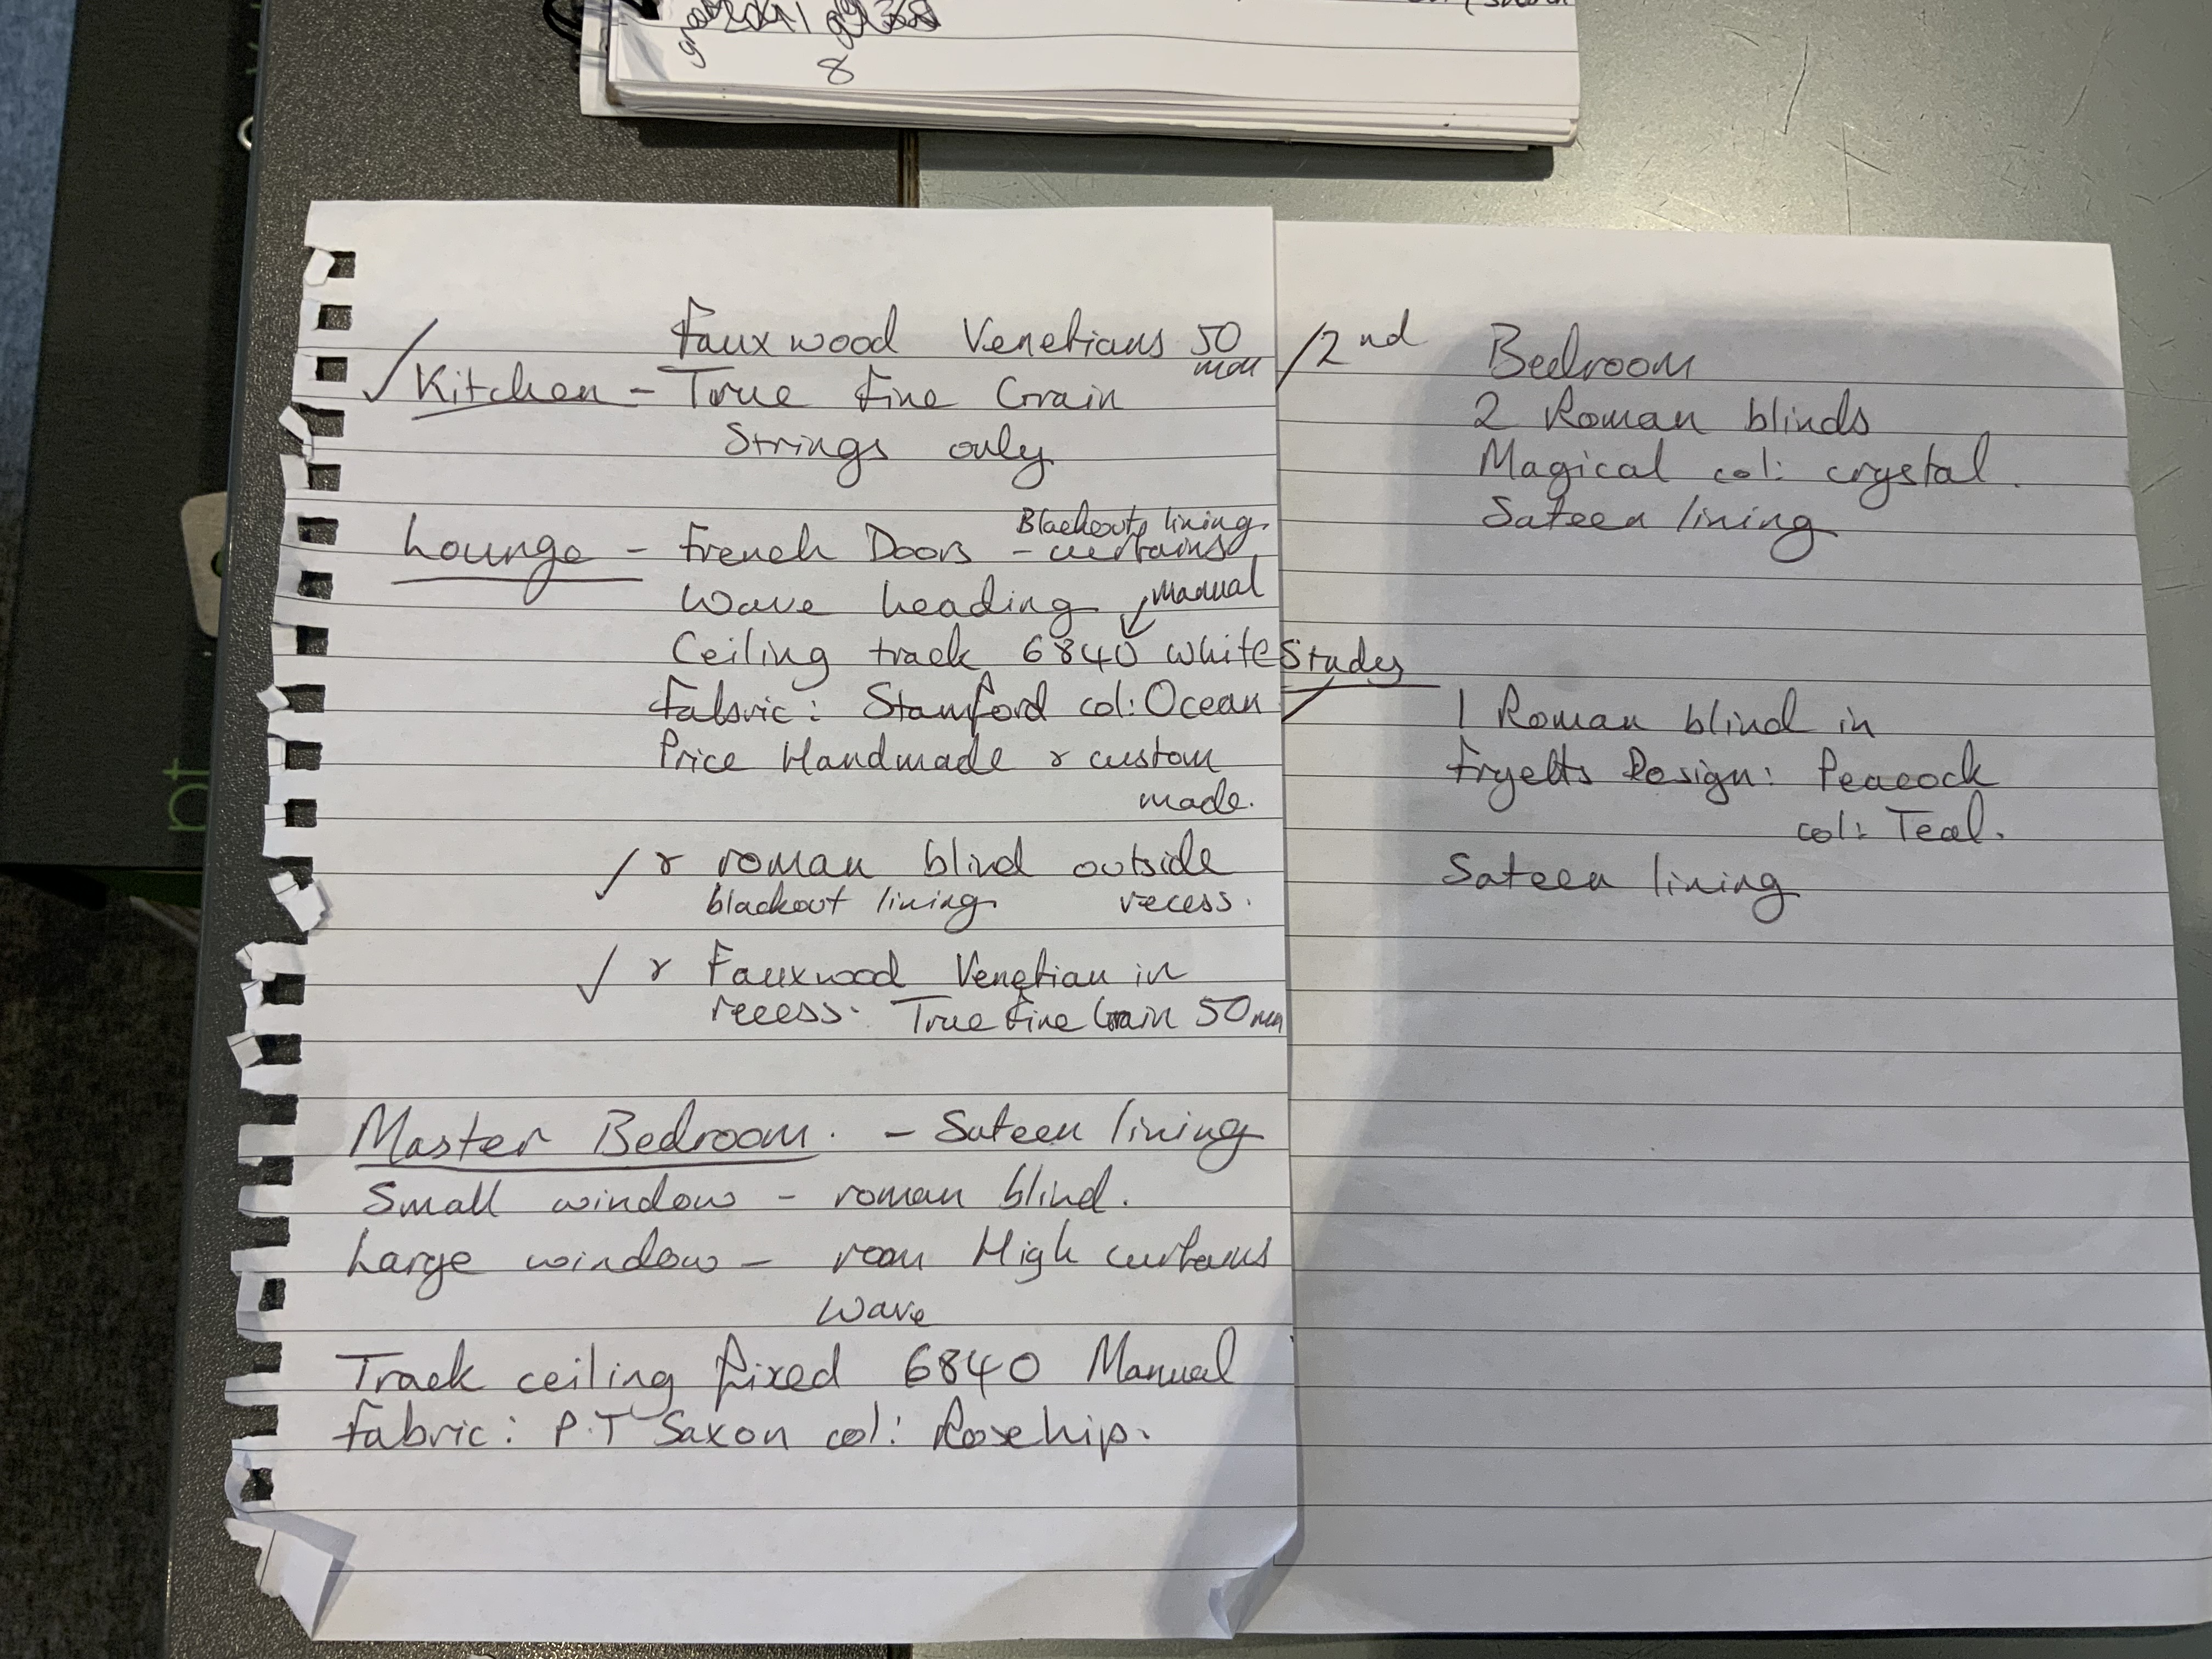 8
pt
Fauxwood Venetians 50
mm
✓ Kitchen - True Fine Grain
Strings only
Blackout lining
Lounge - French Doors - curtains
Wave heading Manual
Ceiling track 6840 White
Fabric: Stamford col: Ocean
Price Handmade & custom
made.
✓ & roman blind outside
blackout lining recess.
✓ & Fauxwood Venetian in
recess. True Fine Grain 50mm
Master Bedroom. - Sateen lining
Small window - roman blind.
Large window - room High curtains
Wave
Track ceiling fixed 6840 Manual
Fabric: P.T Saxon col: Rosehip.
/2nd Bedroom
2 Roman blinds
Magical col: crystal.
Sateen lining
Study
1 Roman blind in
Fryetts Design: Peacock
col: Teal.
Sateen lining